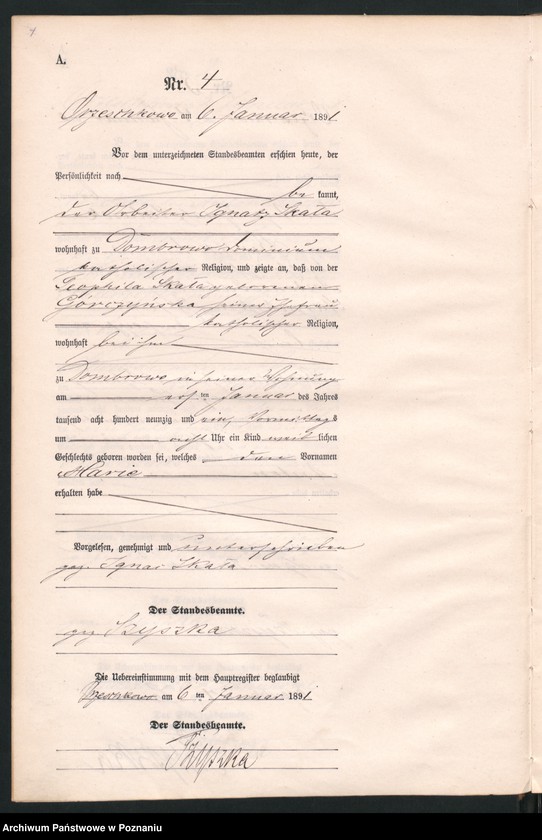 A.
Nr. 4
Orzeschkowo am 6. Januar 1891
Vor dem unterzeichneten Standesbeamten erschien heute, der
Persönlichkeit nach
be kannt,
der Arbeiter Ignatz Skała
wohnhaft zu Dombrowo Dominium
katholischer Religion, und zeigte an, daß von der
Teophila Skała geborenen
Górczyńska seiner Ehefrau
katholischer Religion,
wohnhaft bei ihm
zu Dombrowo in seiner Wohnung
am ten Januar des Jahres
tausend acht hundert neunzig und ein, Vormittags
um acht Uhr ein Kind weib lichen
Geschlechts geboren worden sei, welches den Vornamen
Marie
erhalten habe
Vorgelesen, genehmigt und unterschrieben
gez. Ignac Skała
Der Standesbeamte.
gez Szyszka
Die Uebereinstimmung mit dem Hauptregister beglaubigt
Orzeschkowo am 6 ten Januar 1891
Der Standesbeamte.
Szyszka
Archiwum Państwowe w Poznaniu